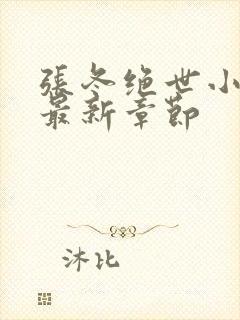 張冬绝世小
最新章節
沐比